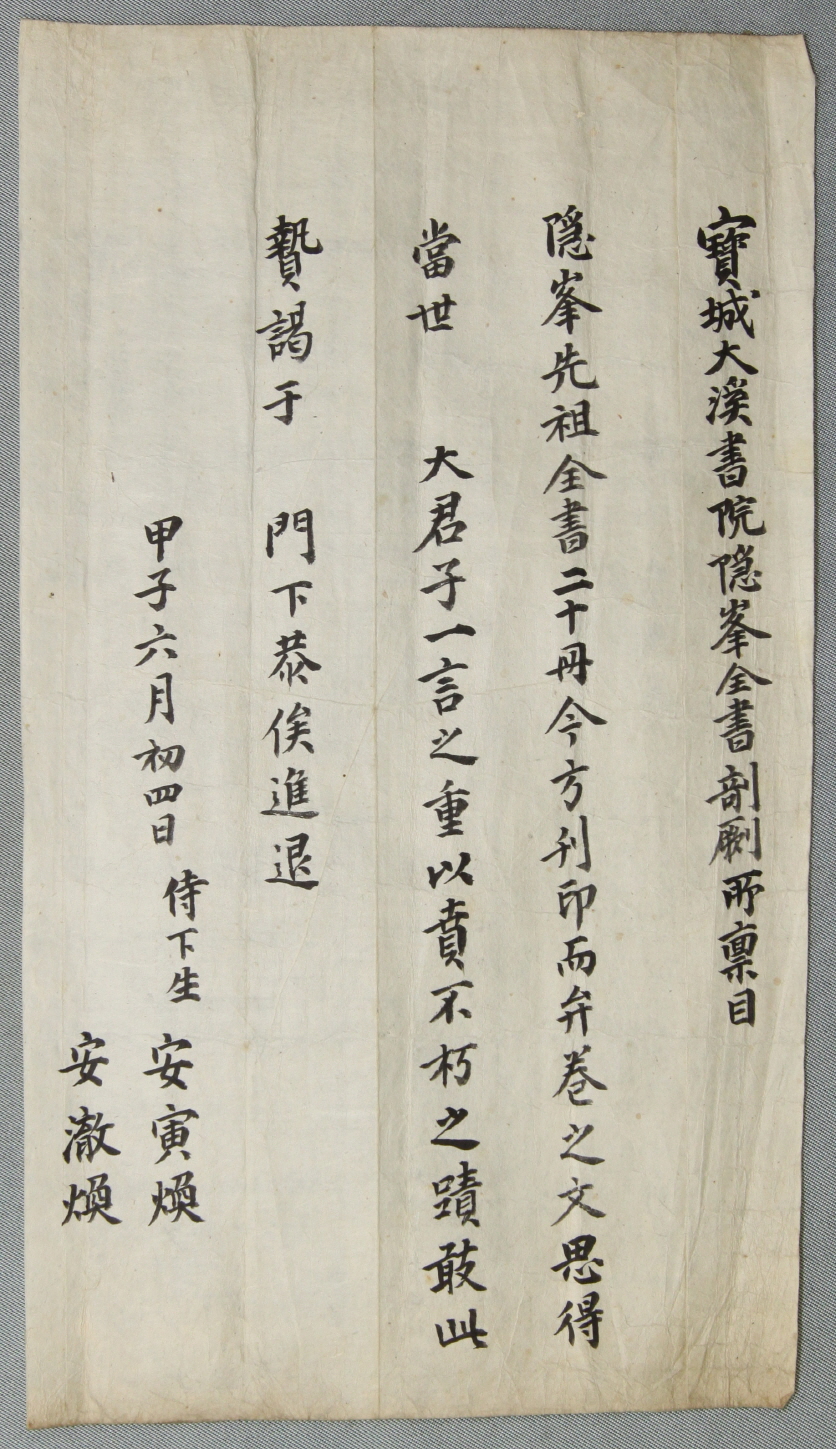 寶城大溪書院隱峯全書剞劂所稟目
隱峯先祖全書二十冊今方刊印而弁卷之文思得
當世 大君子一言之重以賁不朽之蹟敢此
贄謁于 門下恭俟進退
甲子六月初四日 侍下生 安寅煥
安澈煥